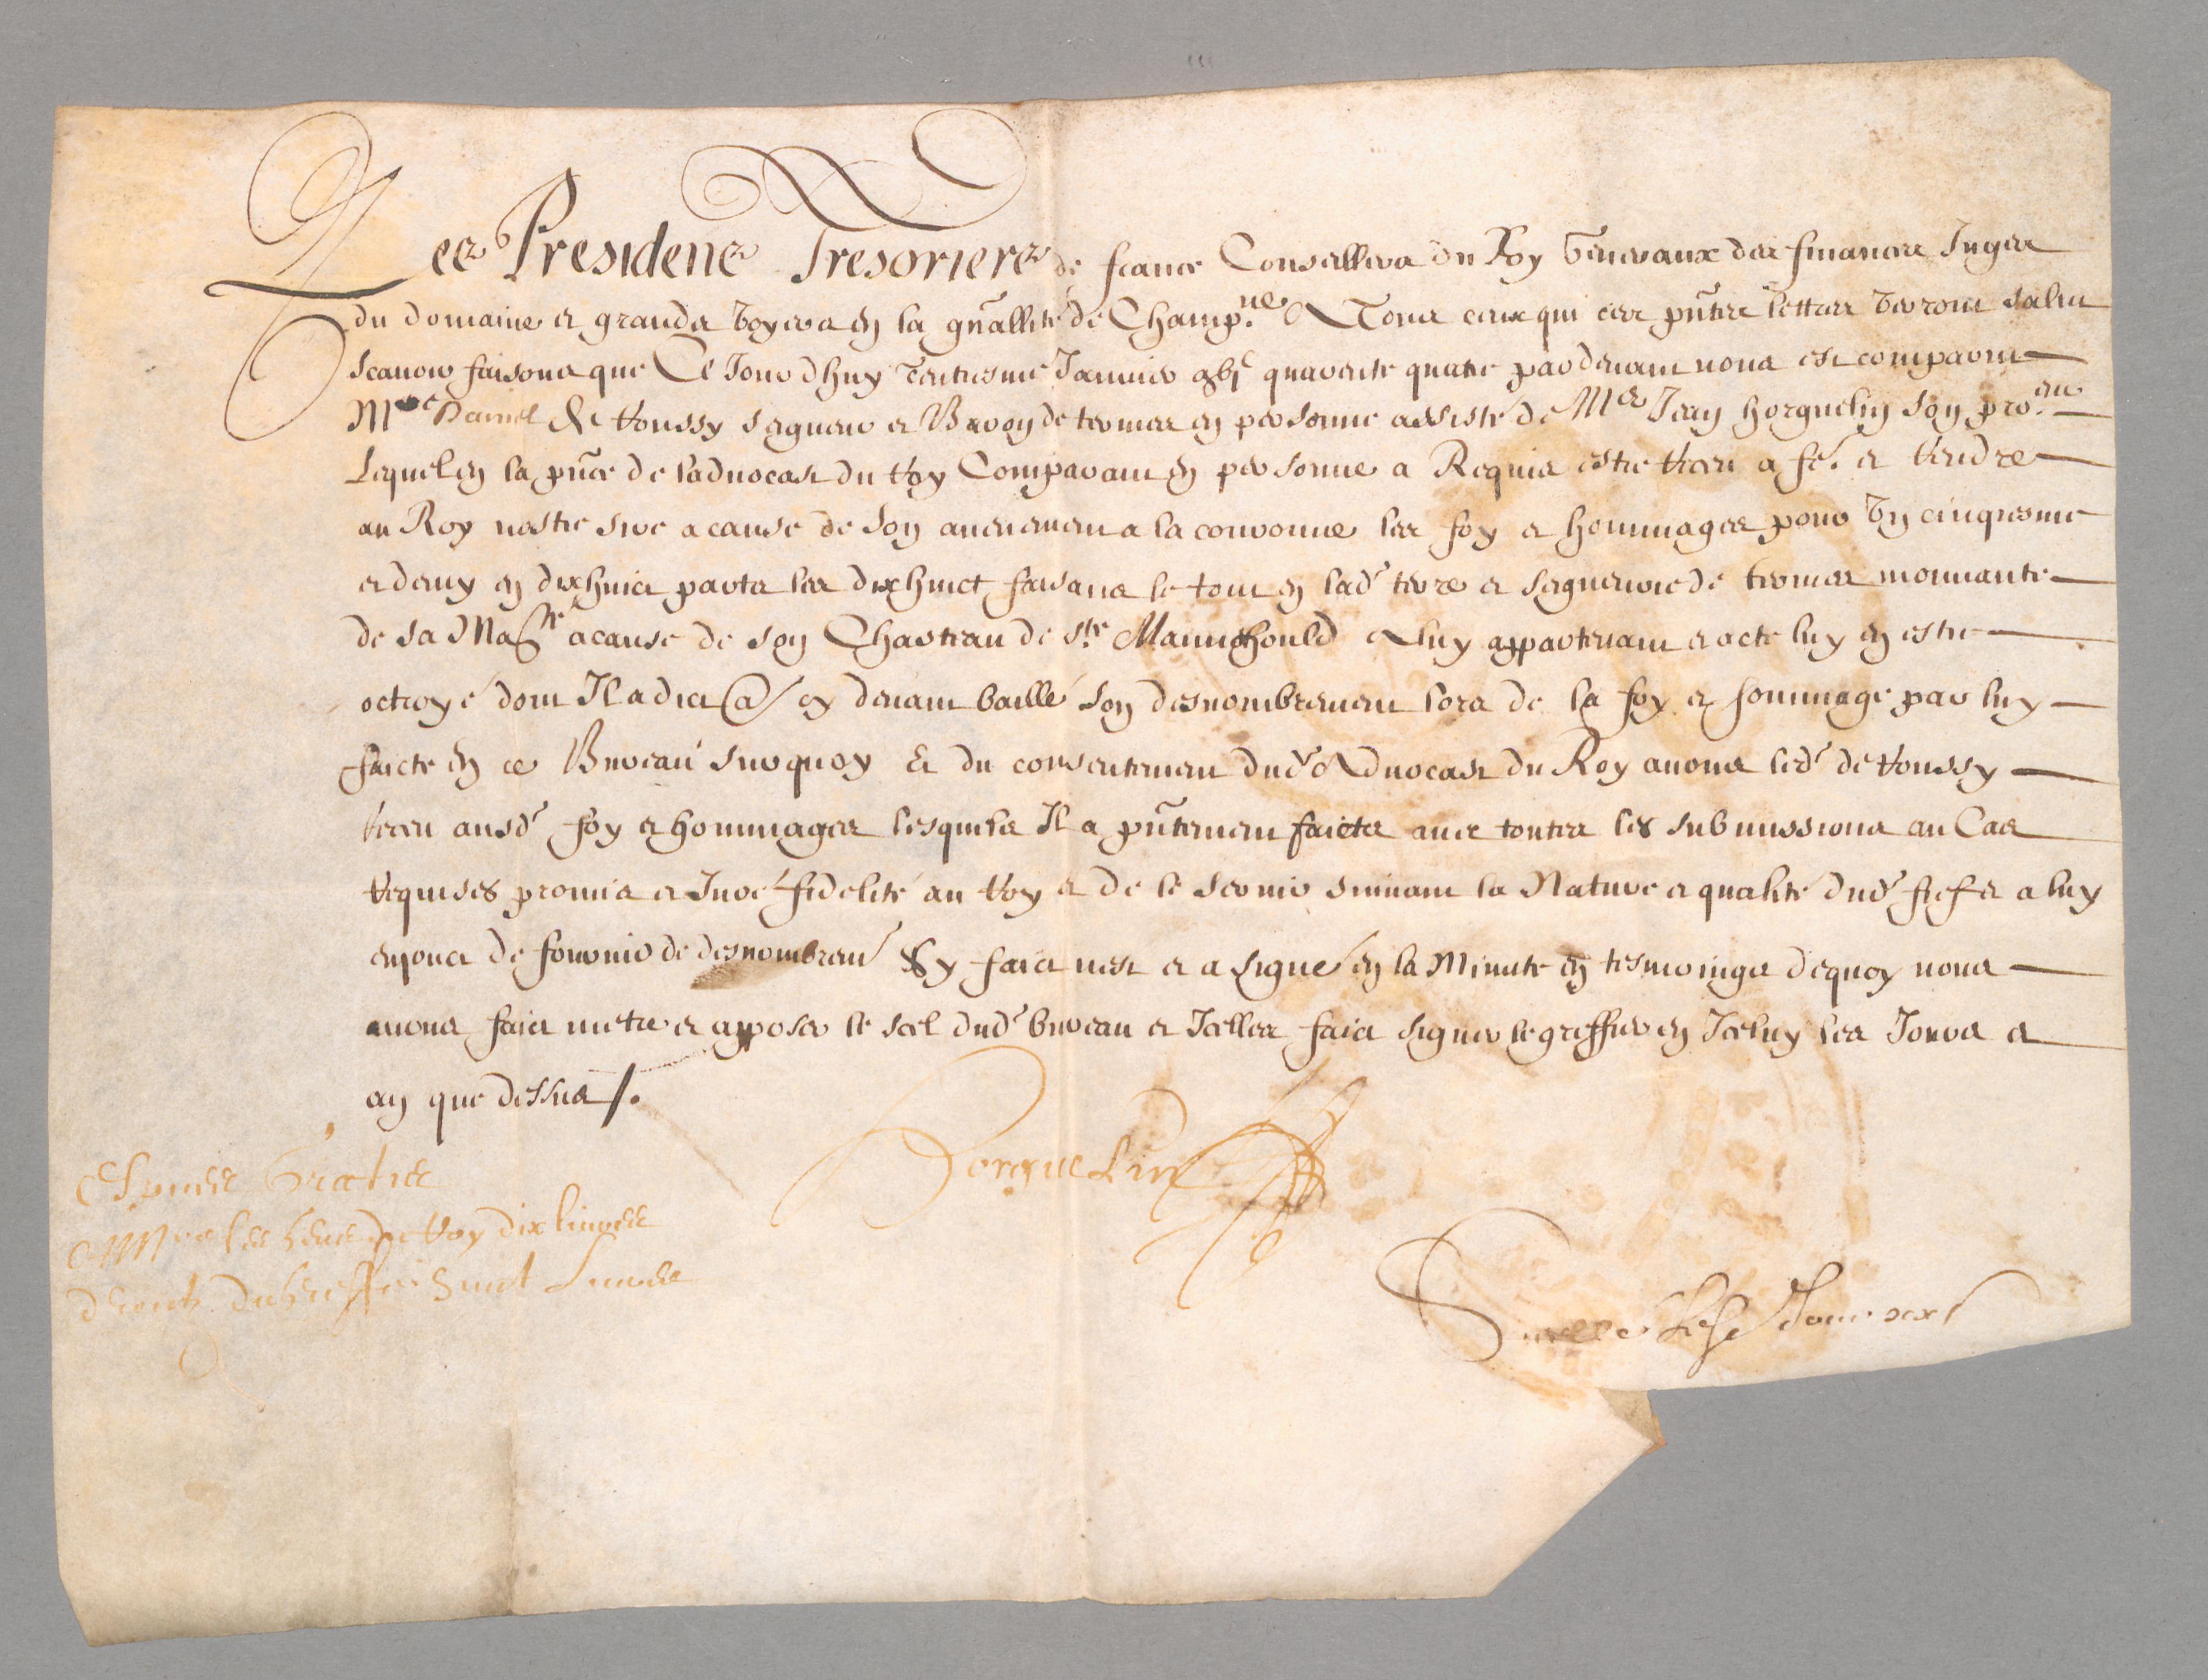 Les Presidens Tresoriers de france Conseillers du Roy generaux des finances Juges
du domaine et grands voyers en la gñallité de Champ.ne A Tous ceux qui ces pñtes lettres verront salut
Scavoir faisons que Ce Jourdhuy Januier quarente quatre par deuant nous est comparu
Mre Daniel de Roussy seigneur et Baron de termes en personne assisté de Me Jean horguelin son pro.eur
Lequel en la pñce de ladvocat du Roy Comparant en personne a Requis estre Receu a fe. et Rendre
au Roy nostre sire a cause de son aduenement a la couronne les foy et hommages pour Un cinquiesme
et deux en dixhuict parts les dixhuict faisans le tout en lad. terre et seigneurie de termes mouuante
de sa Maté a cause de son Chasteau de ste Manehould A luy appartenant et acte luy en estre
octroyé dont Il a dict cy deuant baillé son desnombrement lors de la foy et hommage par luy
faicte en ce Bureau surquoy Et du consentement dud. Aduocat du Roy auons led. de Roussy
Receu ausd. foy et hommages lesquels Il a pñtement faicts auec toutes les submissions au Cas
Requises promis et Juré fidelité au Roy et de le seruir suiuant la Nature et qualité dud. fief et a luy
enjoinct de fournir de desnombremt Sy faict nest et a signé en la Minute en tesmoings dequoy nous
auons faict mettre et apposer le scel dud. bureau et Icelles faict signer le greffier en Iceluy les Jours et
an que dessus /.
Horguelin
Espices Gratis
Mrs les gens du Roy dix liures
droict du Greffe huict Liures